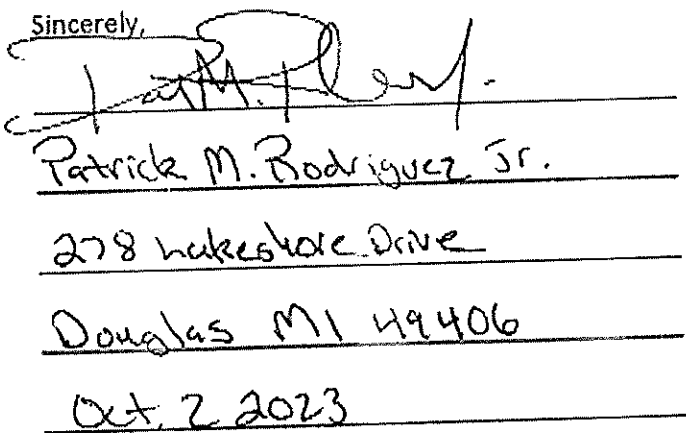 Sincerely,
Patrick M. Rodriguez Jr.
278 Lakeshore Drive
Douglas MI 49406
Oct. 2 2023